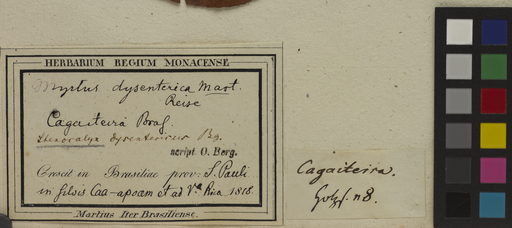 HERBARIUM REGIUM MONACENSE
Myrtus dysenterica Mart.
Reise
Cagaiteira Bras.
Stenocalyx dysentericus Bg.
script. O. Berg.
Crescit in Brasiliae prov: S. Pauli
in silvis Caa-apoam et ad Va Rica 1818.
Martius Iter Brasiliense.
Cagaiteira.
n 8.